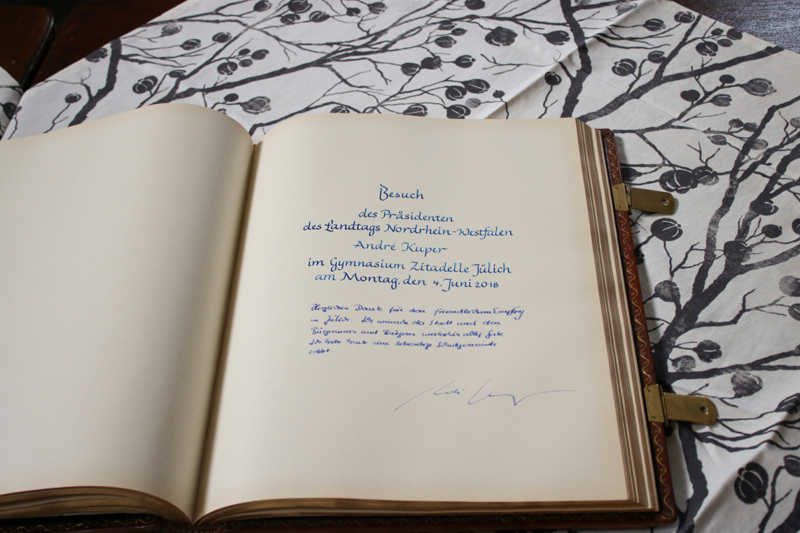 Besuch
des Präsidenten
des Landtags Nordrhein-Westfalen
André Kuper
im Gymnasium Zitadelle Jülich
am Montag, den 4. Juni 2018
Herzlichen Dank für den freundlichen Empfang
in Jülich. Ich wünsche der Stadt und den
Bürgerinnen und Bürgern weiterhin alles Gute.
Ich habe heute eine lebendige Schulgemeinde
erlebt